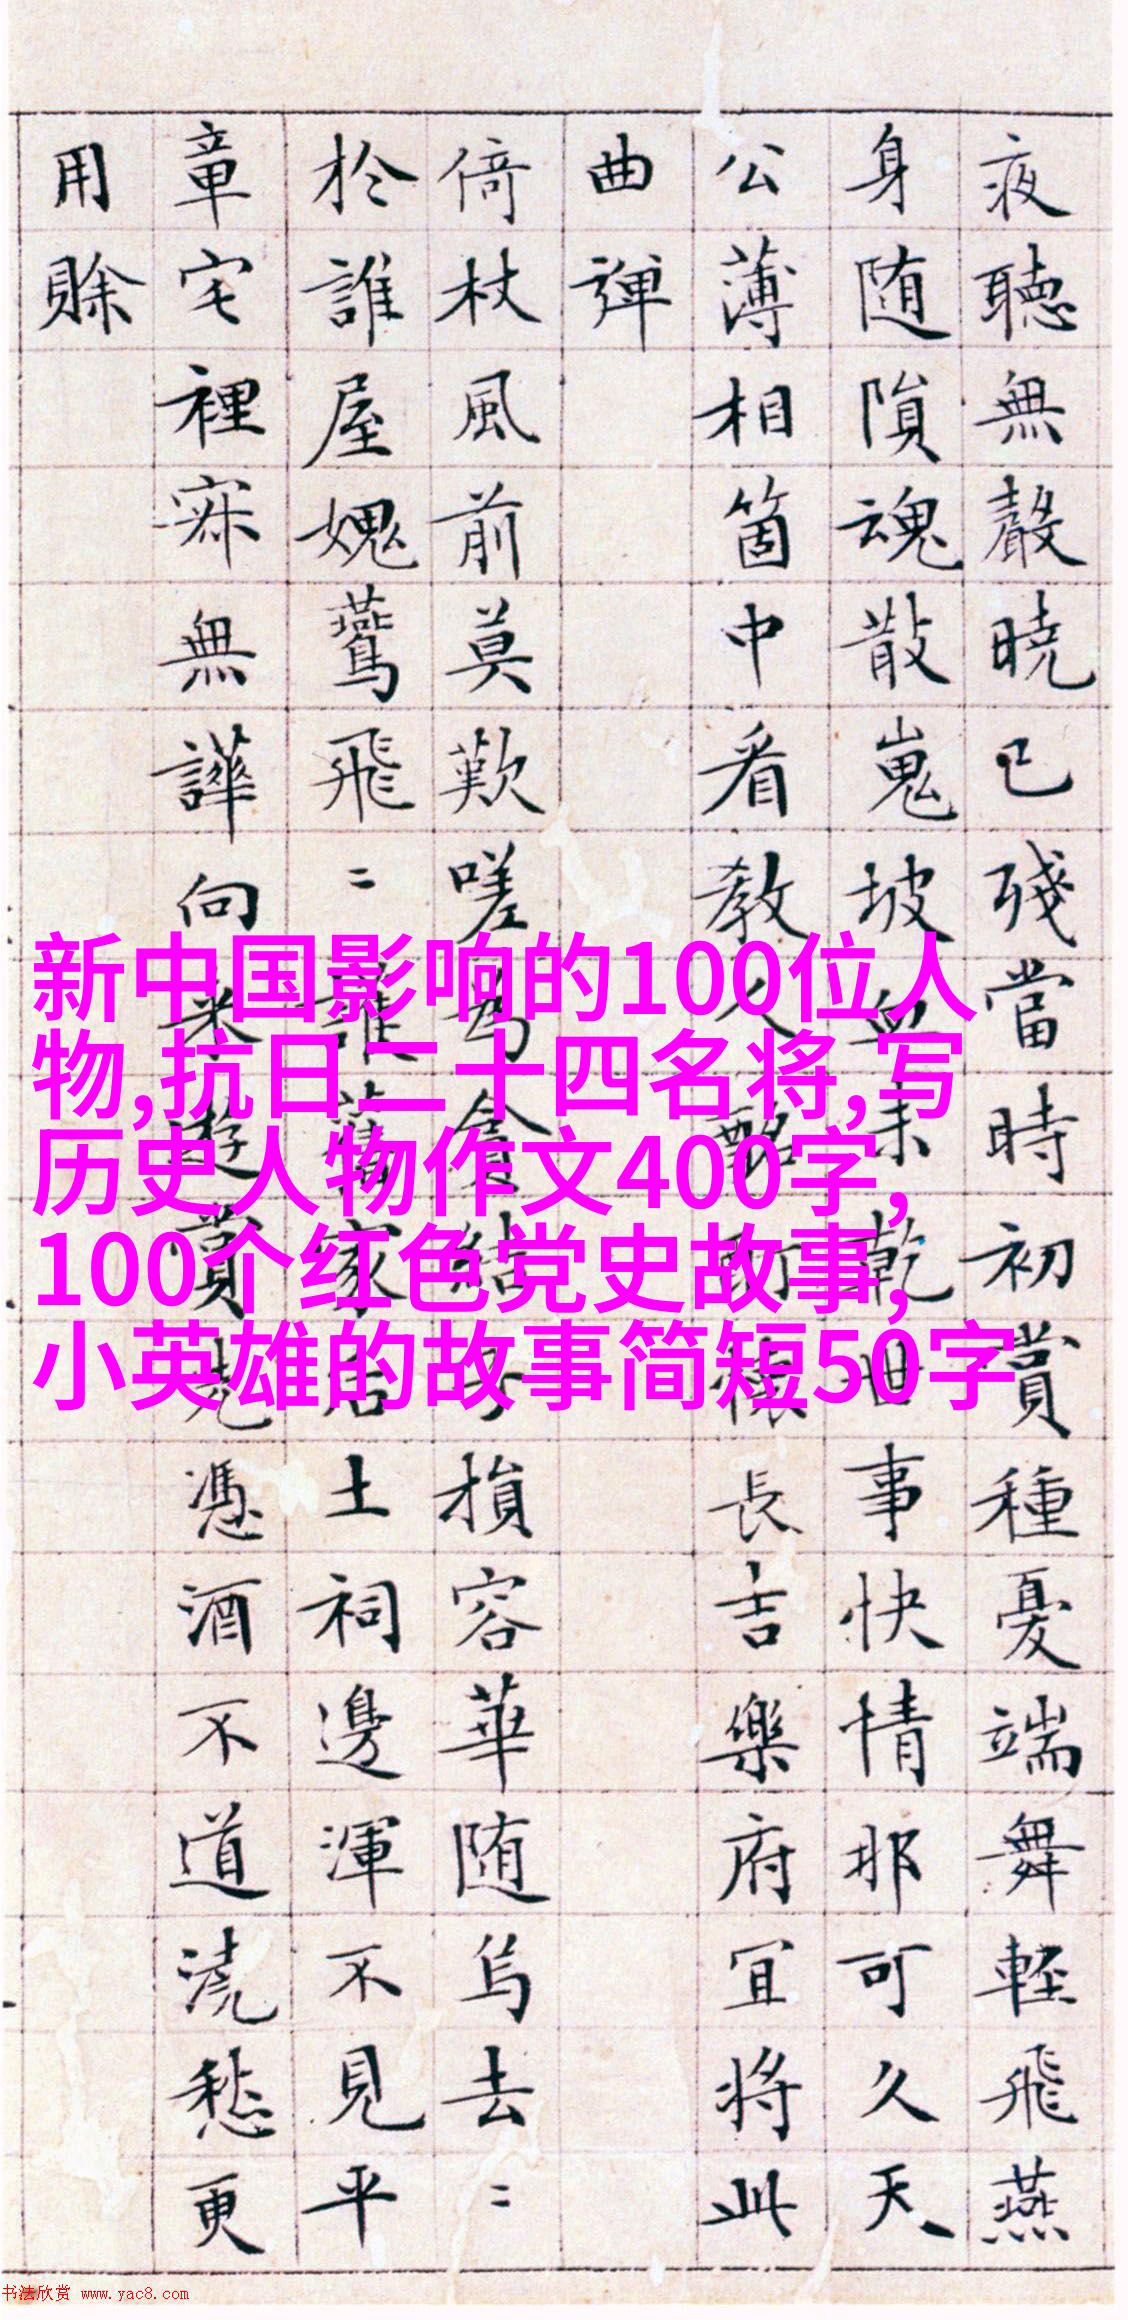 夜聴無聲曉已殘當時初賞種憂端舞輕飛燕
身随隕魂散嵬坡血未乾世事快情那可久天
公薄相箇中看教人酩酊懐長吉樂府宜將此
曲弾
倚杖風前莫歎嗟為貪結子損容華随烏去〻
於誰屋媿鷰飛〻誰舊家后土祠邊渾不見平
章宅裡寂無譁向来遊賞先憑酒不道澆愁更
用賒
新中国影响的100位人
物,抗日二十四名将,写
历史人物作文400字,
100个红色党史故事,
小英雄的故事简短50字
书法欣赏 www.yac8.com